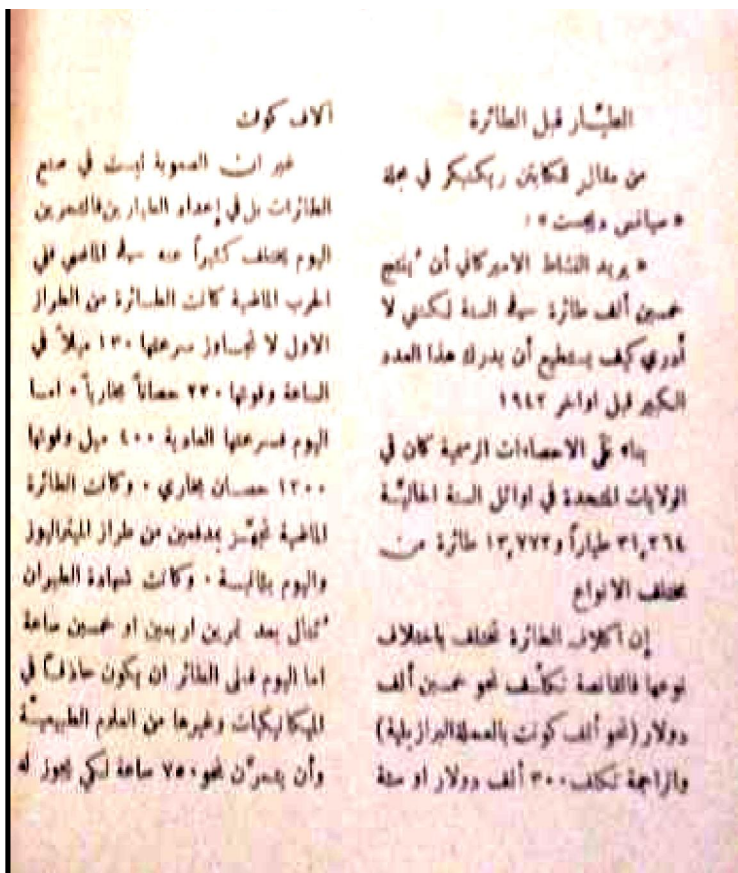 الطيّار قبل الطائرة
من مقال للكابتن ريكنبكر في مجلة
« سيانس ديجست » :
« يريد النشاط الاميركاني أن يُنتج
خمسين ألف طائرة في السنة لكنني لا
أدري كيف يستطيع أن يدرك هذا العدد
الكبير قبل اواخر ١٩٤٢
بناء على الاحصاءات الرسمية كان في
الولايات المتحدة في اوائل السنة الحاليّة
٣١,٢٦٤ طياراً و١٣,٧٧٢ طائرة من
مختلف الانواع
إن اكلاف الطائرة تختلف باختلاف
نوعها فالقانصة تكلّف نحو خمسين ألف
دولار (نحو ألف كونت بالعملة البرازيلية)
والراجمة تكلف ٣٠٠ ألف دولار او ستة
آلاف كونت
غير ان الصعوبة ليست في صنع
الطائرات بل في إعداد الطيارين فالتمرين
اليوم يختلف كثيراً عنه في الماضي ففي
الحرب الماضية كانت الطائرة من الطراز
الاول لا تجاوز سرعتها ١٣٠ ميلاً في
الساعة وقوتها ٢٢٠ حصاناً بخارياً ٠ اما
اليوم فسرعتها العادية ٤٠٠ ميل وقوتها
١٢٠٠ حصان بخاري ٠ وكانت الطائرة
الماضية تجهّز بمدفعين من طراز الميتراليوز
واليوم بثمانية ٠ وكانت شهادة الطيران
تُنال بعد تمرين اربعين او خمسين ساعة
اما اليوم فعلى الطائر ان يكون حاذقاً في
الميكانيكيات وغيرها من العلوم الطبيعيّة
وأن يتمرّن نحو ٧٥٠ ساعة لكي يجوز له